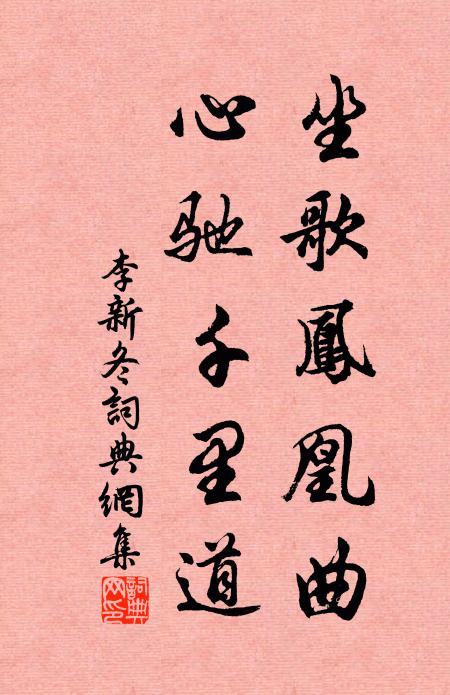 坐歌鳳凰曲
心馳千里道
李新冬詞典網集
詞典網印